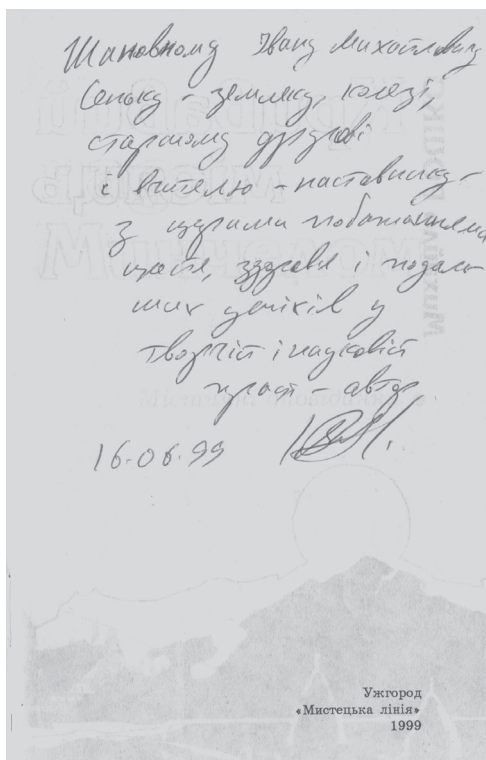 Шановному Івану Михайловичу
Сеньку – земляку, колезі,
старшому другові
і вчителю – наставнику –
з щирими побажаннями
щастя, здоровя і подаль
ших успіхів у
творчій і науковій
праці – автор
16.06.99
Ужгород
«Мистецька лінія»
1999